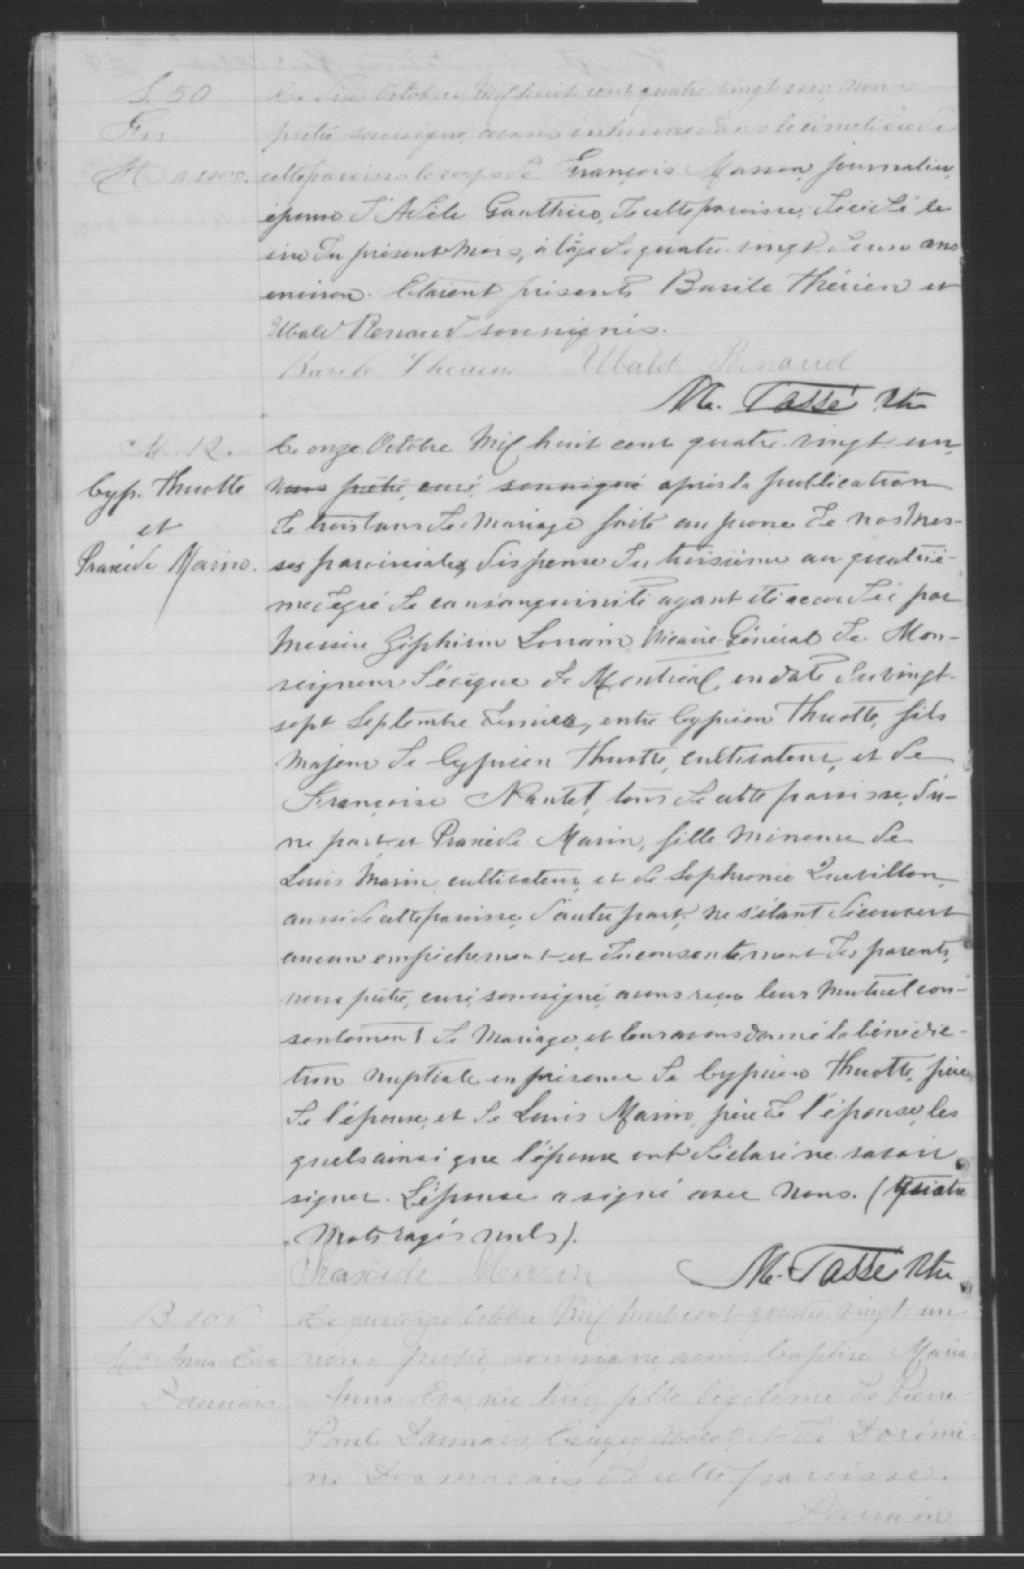 S. 50
Frs
Masson.
Le dix Octobre Mil huit cent quatre vingt un, nous
prêtre soussigné, avons inhumé dans le cimetière de
cette paroisse le corps de François Masson, journalier,
époux d'Adèle Gauthier, de cette paroisse, décédé le
six du présent Mois, à l'âge de quatre-vingt-deux ans
environ. Etaient présents Basile Thérien et
Ubald Renaud soussignés.
Basile Therien Ubald Renaud
M. Tassé Ptre
M. 12.
Cyp. Thuotte
et
Praxède Marin.
Le onze Octobre Mil huit cent quatre-vingt-un,
nous prêtre, curé, soussigné après la publication
de trois bans de Mariage faite au prone de nos Mes-
ses paroissiales, dispense du troisième au quatriè-
me degré de consanguinité ayant été accordée par
Messire Zéphirin Lorrain, Vicaire Général de Mon-
seigneur l'évêque de Montréal, en date du vingt-
sept Septembre dernier, entre Cyprien Thuotte, fils
Majeur de Cyprien Thuotte, cultivateur, et de
Françoise Nantel, tous de cette paroisse, d'u-
ne part, et Praxède Marin, fille Mineure de
Louis Marin, cultivateur, et de Sophronie Quevillon,
aussi de cette paroisse, d'autre part, ne s'étant découvert
aucun empêchement et du consentement des parents,
nous prêtre, curé, soussigné, avons reçu leur Mutuel con-
sentement de Mariage, et leur avons donné la bénédic-
tion nuptiale en présence de Cyprien Thuotte, père
de l'époux, et de Louis Marin, père de l'épouse, les
quels ainsi que l'époux ont déclaré ne savoir
signer. L'épouse a signé avec Nous. (Quatre
Mots rayés nuls).
Praxède Marin M. Tassé Ptre
Mie Anna Eva
Daunais
Le quatorze Octobre Mil huit cent quatre vingt un
nous, prêtre, soussigné, avons baptisé Marie-
Anna Eva, née hier, fille légitime de Pierre-
Paul Daunais, et de Dorimè-
ne Desmarais de cette paroisse.